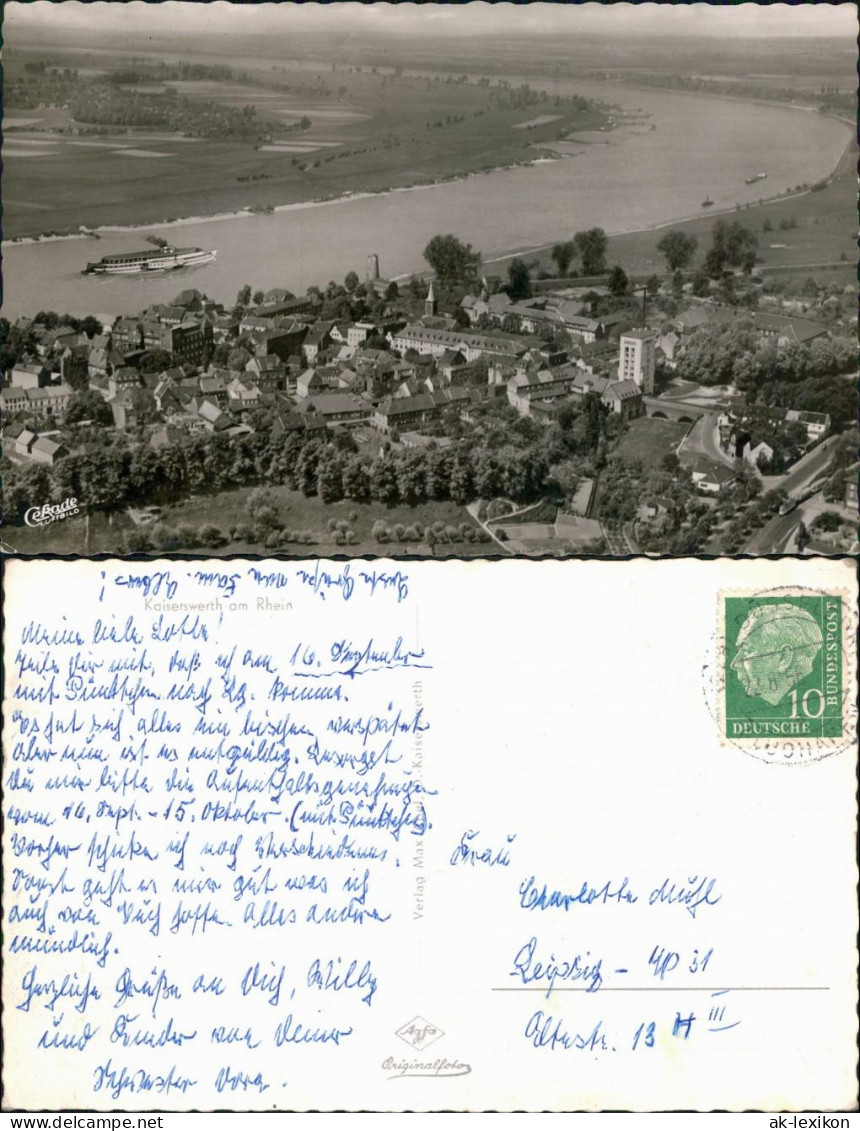 Cekade
LUFTBILD
Beste Grüße von Fam. !
Kaiserswerth am Rhein
Meine liebe Lotte!
Teile Dir mit, daß ich am 16. September
mit Pünktchen nach Lg. komme.
Es hat sich alles ein bischen verspätet
aber nun ist es entgültig. Besorgst
Du mir bitte die Aufenthaltsgenehmigung
vom 16. Sept. - 15. Oktober. (mit Pünktchen).
Vorher schicke ich noch Verschiedenes.
Sonst geht es mir gut was ich
auch von Euch hoffe. Alles andere
mündlich.
Herzliche Grüße an Dich, Willy
und Kinder von Deiner
Schwester Dora.
Verlag Max Kaiserswerth
10
DEUTSCHE
BUNDESPOST
Frau
Charlotte Mühl
Leipzig - 31
13 H III
Agfa
Originalfoto
www.ak-ansichtskarten.de
ak-lexikon